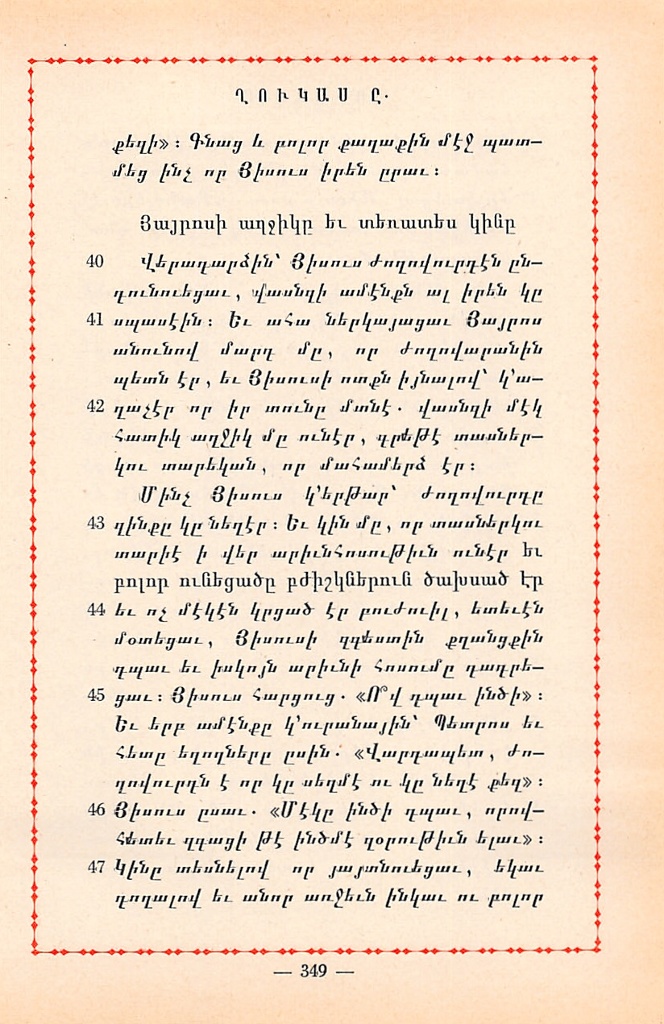 ՂՈՒԿԱՍ Ը.
քեզի»։ Գնաց և բոլոր քաղաքին մէջ պատ—
մեց ինչ որ Յիսուս իրեն ըրաւ։
Յայրոսի աղջիկը եւ տեռատես կինը
40 Վերադարձին՝ Յիսուս ժողովուրդէն ըն—
դունուեցաւ, վասնզի ամէնքն ալ իրեն կը
41 սպասէին։ Եւ ահա ներկայացաւ Յայրոս
անունով մարդ մը, որ ժողովարանին
պետն էր, եւ Յիսուսի ոտքն իյնալով՝ կ՚ա—
42 ղաչէր որ իր տունը մտնէ. վասնզի մէկ
հատիկ աղջիկ մը ունէր, գրեթէ տասներ—
կու տարեկան, որ մահամերձ էր։
Մինչ Յիսուս կ՚երթար՝ ժողովուրդը
43 զինքը կը նեղէր։ Եւ կին մը, որ տասներկու
տարիէ ի վեր արիւնհոսութիւն ունէր եւ
բոլոր ունեցածը բժիշկներուն ծախսած էր
44 եւ ոչ մէկէն կրցած էր բուժուիլ, ետեւէն
մօտեցաւ, Յիսուսի զգեստին քղանցքին
դպաւ եւ իսկոյն արիւնի հոսումը դադրե—
45 ցաւ։ Յիսուս հարցուց. «Ո՞վ դպաւ ինծի»։
Եւ երբ ամէնքը կ՚ուրանային՝ Պետրոս եւ
հետը եղողները ըսին. «Վարդապետ, ժո—
ղովուրդն է որ կը սեղմէ ու կը նեղէ քեզ»։
46 Յիսուս ըսաւ. «Մէկը ինծի դպաւ, որով—
հետեւ զգացի թէ ինծմէ զօրութիւն ելաւ»։
47 Կինը տեսնելով որ յայտնուեցաւ, եկաւ
դողալով եւ անոր առջեւն ինկաւ ու բոլոր
— 349 —